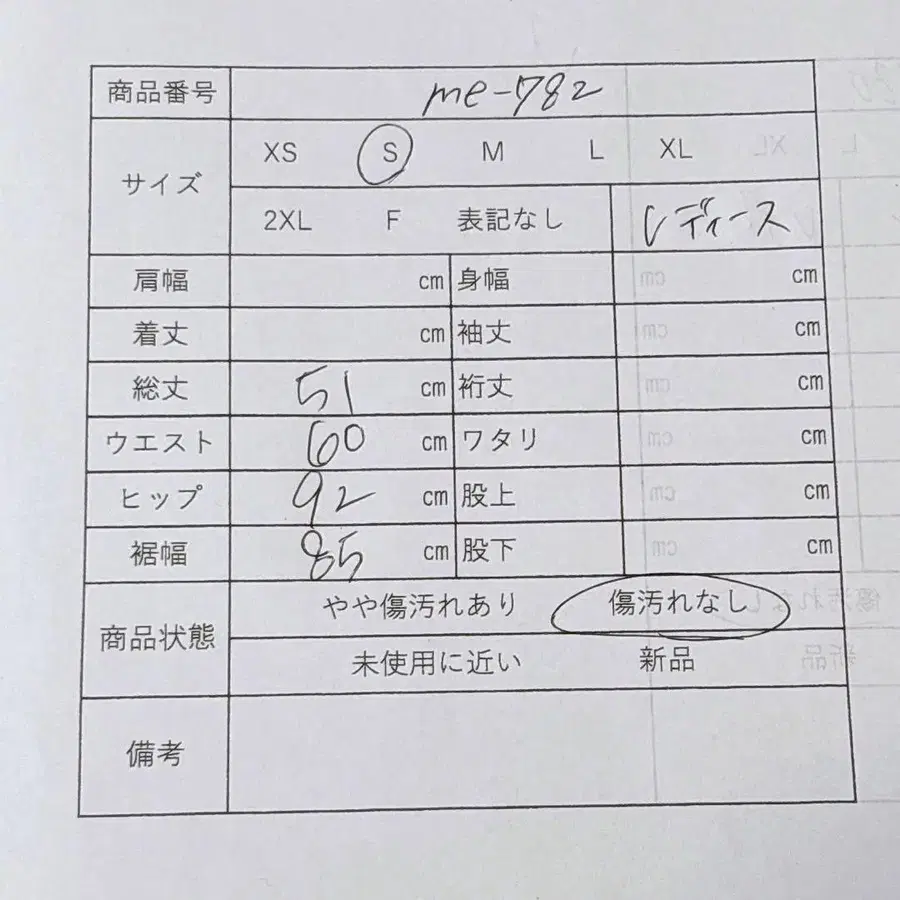 商品番号 me-782
サイズ XS S M L XL
2XL F 表記なし レディース
肩幅 cm 身幅 cm
着丈 cm 袖丈 cm
総丈 51 cm 裄丈 cm
ウエスト 60 cm ワタリ cm
ヒップ 92 cm 股上 cm
裾幅 85 cm 股下 cm
商品状態 やや傷汚れあり 傷汚れなし
未使用に近い 新品
備考